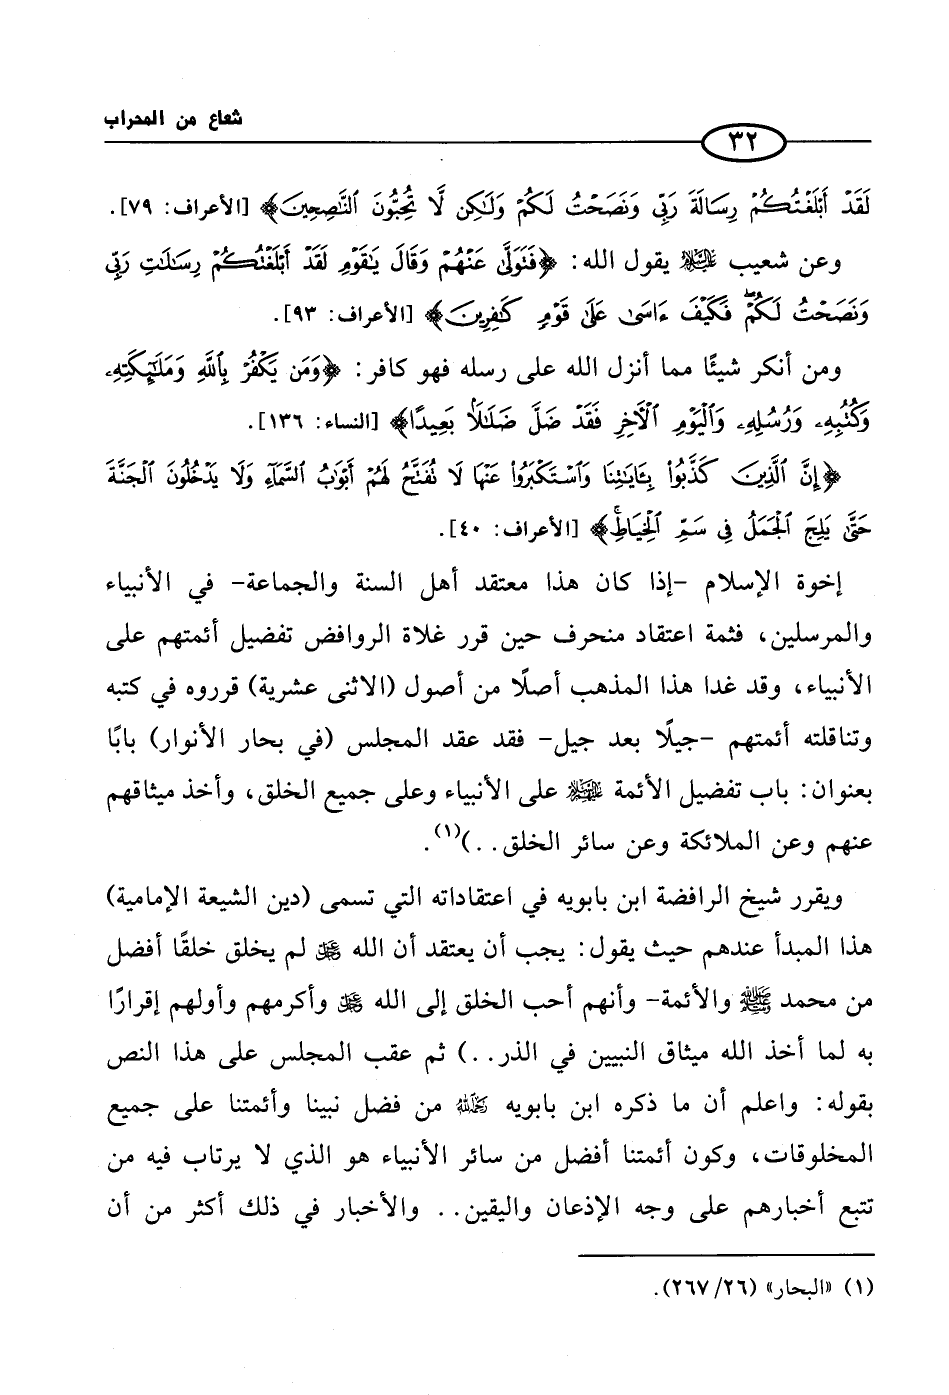 شعاع من المحراب
٣٢
لَقَدْ أَبْلَغْتُكُمْ رِسَالَةَ رَبِّي وَنَصَحْتُ لَكُمْ وَلَٰكِن لَّا تُحِبُّونَ ٱلنَّٰصِحِينَ﴾ [الأعراف: ٧٩].
وعن شعيب عليه السلام يقول الله: ﴿فَتَوَلَّىٰ عَنْهُمْ وَقَالَ يَٰقَوْمِ لَقَدْ أَبْلَغْتُكُمْ رِسَٰلَٰتِ رَبِّي
وَنَصَحْتُ لَكُمْۖ فَكَيْفَ ءَاسَىٰ عَلَىٰ قَوْمٍ كَٰفِرِينَ﴾ [الأعراف: ٩٣].
ومن أنكر شيئًا مما أنزل الله على رسله فهو كافر: ﴿وَمَن يَكْفُرْ بِٱللَّهِ وَمَلَٰٓئِكَتِهِۦ
وَكُتُبِهِۦ وَرُسُلِهِۦ وَٱلْيَوْمِ ٱلْأٓخِرِ فَقَدْ ضَلَّ ضَلَٰلًۢا بَعِيدًا﴾ [النساء: ١٣٦].
﴿إِنَّ ٱلَّذِينَ كَذَّبُوا۟ بِـَٔايَٰتِنَا وَٱسْتَكْبَرُوا۟ عَنْهَا لَا تُفَتَّحُ لَهُمْ أَبْوَٰبُ ٱلسَّمَآءِ وَلَا يَدْخُلُونَ ٱلْجَنَّةَ
حَتَّىٰ يَلِجَ ٱلْجَمَلُ فِي سَمِّ ٱلْخِيَاطِۚ﴾ [الأعراف: ٤٠].
إخوة الإسلام -إذا كان هذا معتقد أهل السنة والجماعة- في الأنبياء
والمرسلين، فثمة اعتقاد منحرف حين قرر غلاة الروافض تفضيل أئمتهم على
الأنبياء، وقد غدا هذا المذهب أصلًا من أصول (الاثنى عشرية) قرروه في كتبه
وتناقلته أئمتهم -جيلًا بعد جيل- فقد عقد المجلس (في بحار الأنوار) بابًا
بعنوان: باب تفضيل الأئمة عليهم السلام على الأنبياء وعلى جميع الخلق، وأخذ ميثاقهم
عنهم وعن الملائكة وعن سائر الخلق..)(١).
ويقرر شيخ الرافضة ابن بابويه في اعتقاداته التي تسمى (دين الشيعة الإمامية)
هذا المبدأ عندهم حيث يقول: يجب أن يعتقد أن الله عز وجل لم يخلق خلقًا أفضل
من محمد ﷺ والأئمة- وأنهم أحب الخلق إلى الله عز وجل وأكرمهم وأولهم إقرارًا
به لما أخذ الله ميثاق النبيين في الذر..) ثم عقب المجلس على هذا النص
بقوله: واعلم أن ما ذكره ابن بابويه رحمه الله من فضل نبينا وأئمتنا على جميع
المخلوقات، وكون أئمتنا أفضل من سائر الأنبياء هو الذي لا يرتاب فيه من
تتبع أخبارهم على وجه الإذعان واليقين.. والأخبار في ذلك أكثر من أن
(١) «البحار» (٢٦/ ٢٦٧).